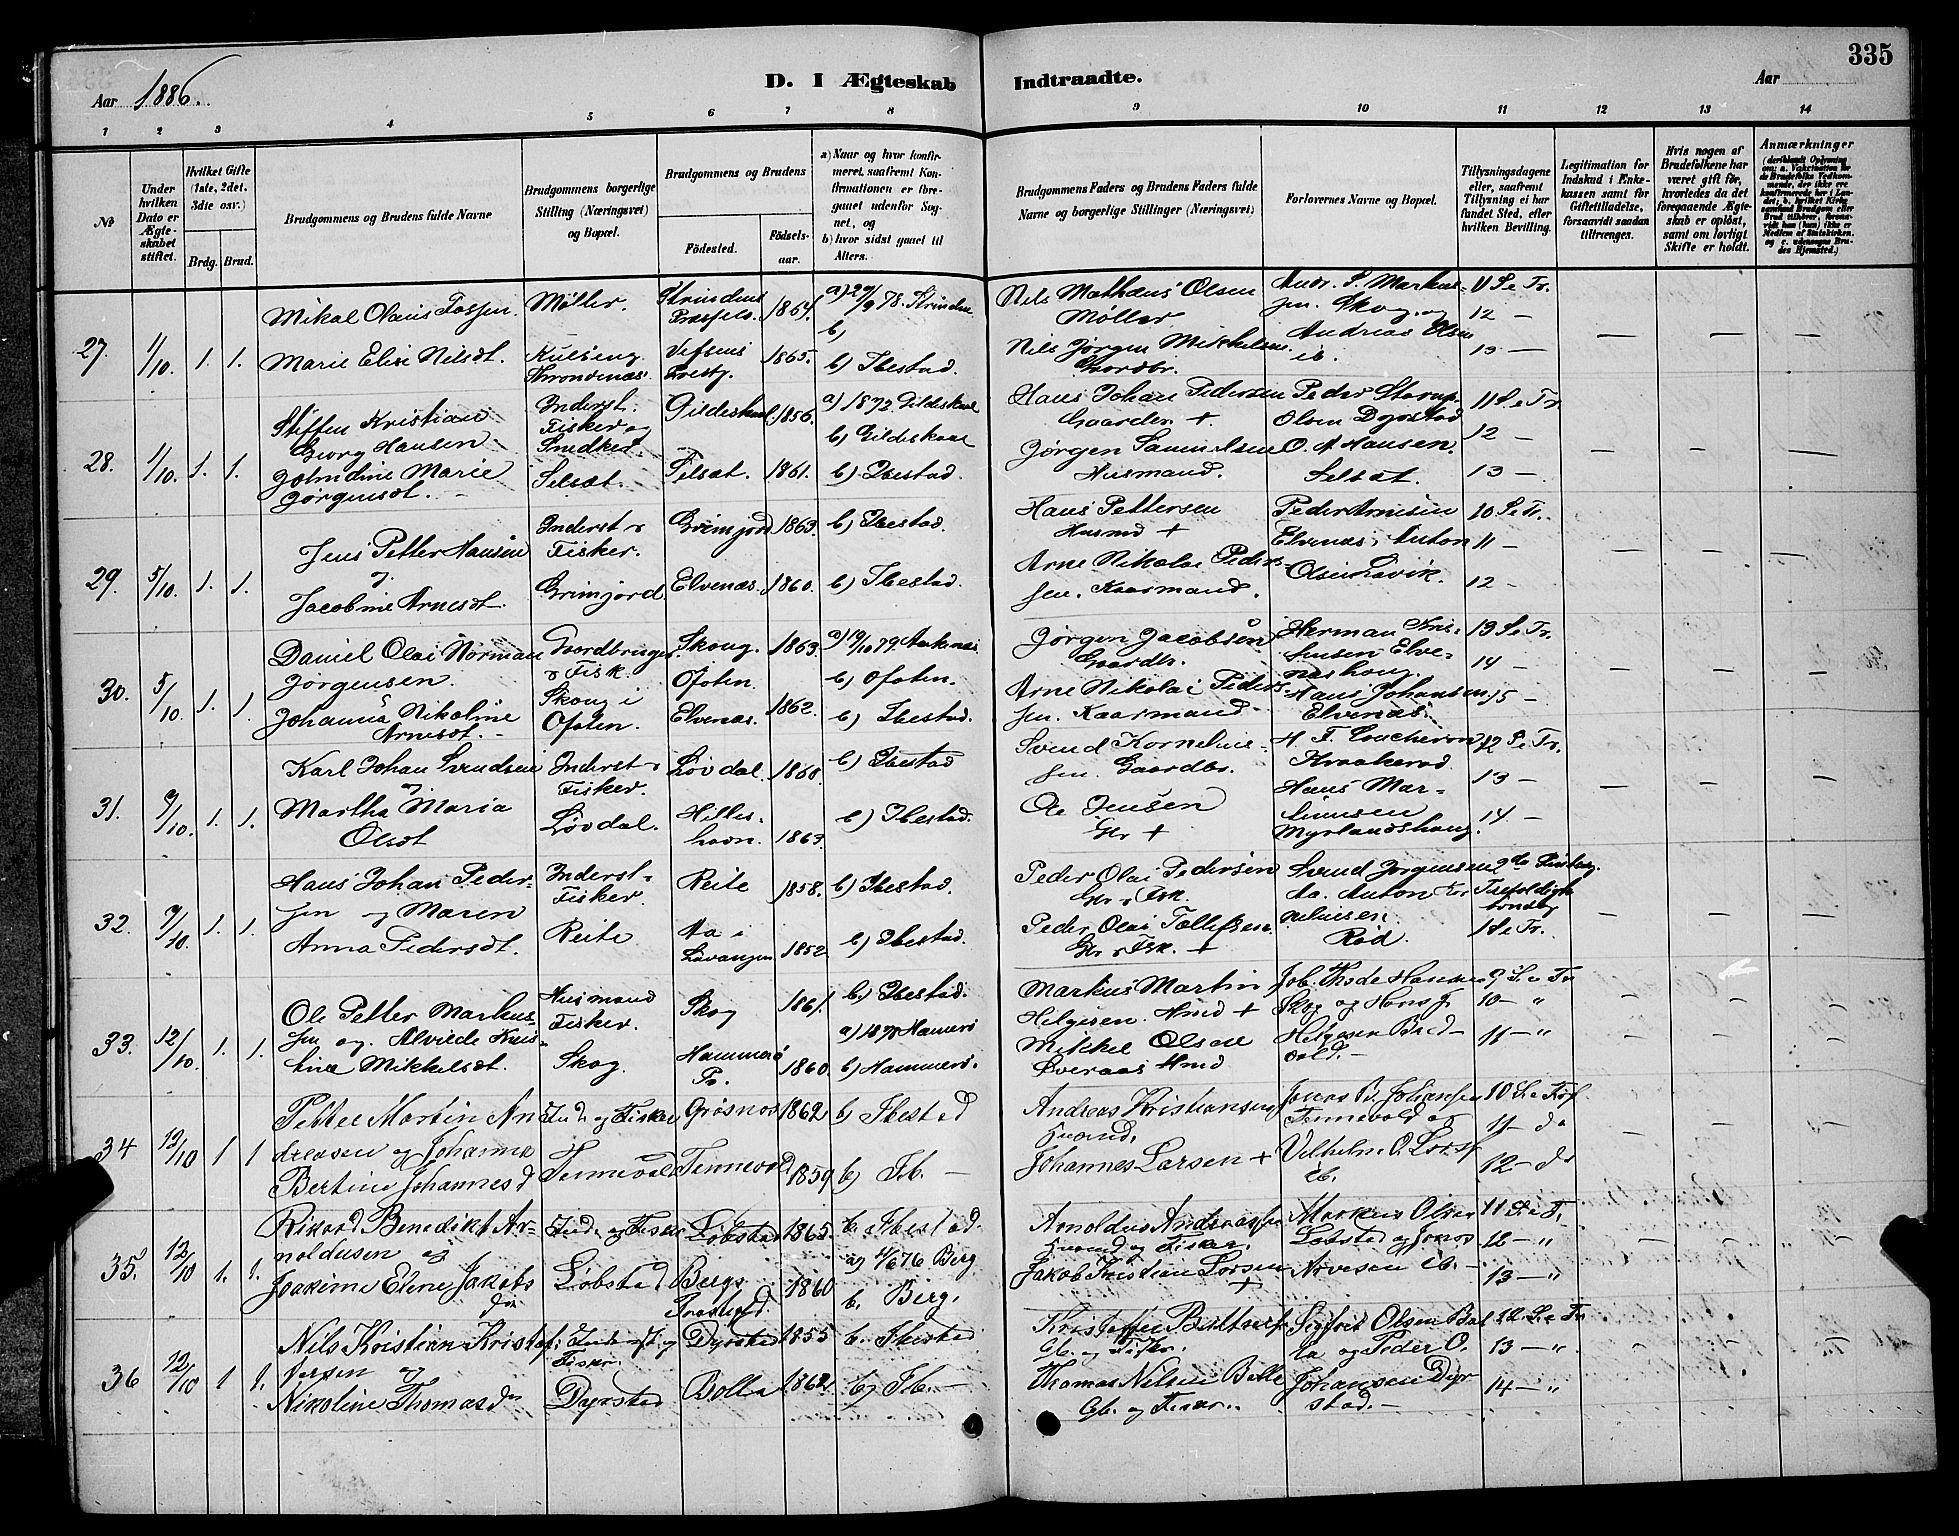 335
D. I Ægteskab Indtraadte.
Aar 1886.
Aar
1 2 3 4 5 6 7 8 9 10 11 12 13 14
№
Under hvilken Dato er Ægteskabet stiftet.
Hvilket Gifte (1ste, 2det, 3die osv.)
Brdg. Brud.
Brudgommens og Brudens fulde Navne
Brudgommens borgerlige Stilling (Næringsvei) og Bopæl.
Brudgommens og Brudens
Fødested.
Fødselsaar.
a) Naar og hvor konfirmeret, saafremt Konfirmationen er foregaaet udenfor Sognet, og
b) hvor sidst gaaet til Alters.
Brudgommens Faders og Brudens Faders fulde Navne og borgerlige Stillinger (Næringsvei)
Forlovernes Navne og Bopæl.
Tillysningsdagene eller, saafremt Tillysning ei har fundet Sted, efter hvilken Bevilling.
Legitimation for Indskud i Enkekassen samt for Giftetilladelse, forsaavidt saadan tiltrænges.
Hvis nogen af Brudefolkene har været gift før, hvorledes da det foregaaende Ægteskab er opløst, samt om lovligt Skifte er holdt.
Anmærkninger
27. 1/10. 1. 1.
Mikal Olaus Fossen.
Marie Elise Nilsdt.
Møller.
Kulseng Throndenæs.
Strindens Præstgj. 1864.
Vefsens Prestg. 1865.
a) 29/9 78. Strinden
b)
b) Ibestad.
Nils Mathæus Olsen
Møller
Nils Jørgen Mikkelsen
Gaardbr.
Andr. P. Markus-
sen. Skog, og
Andreas Olsen
ib.
11 S. e. Tr.
12 —
13 —
28. 1/10. 1. 1.
Steffen Kristian
Georg Hansen
Johndine Marie
Jørgensdt.
Inderst.
Fisker og
Snedker.
Selsæt.
Gildeskaal 1856.
Selsæt. 1861.
a) 1872 Gildeskaal
b) Gildeskaal
b) Ibestad.
Hans Johan Pedersen
Gaardbr. +
Jørgen Samuelsen
Husmand.
Peder Storup
Olsen Dyrstad
O. A Hansen.
Selsæt.
11 S. e Tr.
12 —
13 —
29. 5/10. 1. 1.
Jens Petter Hansen
og
Jacobine Arnesdt.
Inderst &
Fisker.
Grimjord
Grimjord 1863.
Elvenæs. 1860.
b) Ibestad.
b) Ibestad.
Hans Pettersen
Husmd +
Arne Nikolai Peder-
sen. Kaarmand.
Peder Arnesen
Elvenæs, Anton
Olsen Lavik.
10 S. e Tr.
11 —
12 —
30. 5/10. 1. 1.
Daniel Olai Norman
Jørgensen.
Johanna Nikoline
Arnesdt.
Gaardbruger
& Fisk.
Skog i
Ofoten.
Skog. Ofoten 1863.
Elvenæs. 1862.
b) Ofoten.
b) Ibestad.
Jørgen Jacobsen
Gaardbr.
Arne Nikolai Peder-
sen. Kaarmand
Herman Kris-
tensen Elve-
neshaug
Hans Johansen
Elvenæs.
13 S. e Tr.
14 —
15 —
31. 9/10. 1. 1.
Karl Johan Svendsen
og
Martha Maria
Olsdt
Inderst &
Fisker.
Løvdal.
Løvdal. 1860.
Hilles-
havn. 1863.
b) Ibestad
b) Ibestad.
Svend Kornelius-
sen. Gaardbr.
Ole Jensen
Gbr +
Kraakerød
Hans Mar-
tinusen
Myrlandshaug.
12 S. e Tr.
13 —
14 —
32. 9/10. 1. 1.
Hans Johan Peder-
sen og Maren
Anna Pedersdt.
Inderst-
Fisker.
Reite
Reite 1858.
Aa i
Lavangen 1852
b) Ibestad.
b) Ibestad.
Peder Olai Pedersen
Gbr & Fsk.
Peder Olai Tollefsen.
Gbr & Fsk. +
Svend Jørgensen
Aa. Anton Kor
neliusen
Rød.
2de Pintsdag.
Trefoldigh.
søndag
1 S. e Tr.
33. 12/10. 1. 1.
Ole Petter Markus-
sen og Alvilde Kris-
tine Mikkelsdt.
Husmand
Fisker.
Skog.
Skog 1861.
Hammerø
Pr. 1860
b) Ibestad.
a) 1878 Hamerø
b) Hammerø.
Markus Martin
Helgesen. Hmd +
Mikkel Olsen
Sveraas Hmd
Job. Thode Hansen
Skog og Hans J.
Helgesen Bred-
vold.
9 S. e Tr
10 — "
11 — "
34 12/10 1 1
Petter Martin An
dreasen og Johanna
Bertine Johannesd
Ind. og Fisker
Tennevold
Grøsnes 1862
Tennevold 1859
b) Ibestad
b) Ib. —
Andreas Kristiansen
Husmd.
Johannes Larsen +
Jonas B. Johansen
Tennevold og
Vilhelm O. Lors
ib.
10 S. e Tref
11 — do
12 — do
35. 12/10 1. 1.
Rikard Benedikt Ar-
noldusen og
Joakime Elene Jakobs
dtr
Ind. og Fisker
Løbstad
Løbstad 1865.
Bergs
Præstegjd. 1860
b. Ibestad.
a) 4/6 76 Berg
b. Berg.
Arnoldus Andreassen
Husmd og Fisker.
Jakob Kristian Larsen
+
Markus Olsen
Løbstad og Jonas
Arnesen ib. —
11 S. e Tr
12 — "
13 — "
36 12/10 1 1.
Nils Kristian Kristof-
fersen og
Nikoline Thomasdtr
Fisker.
Dyrstad
Dyrstad 1855
Bolla 1862
b. Ibestad
b) Ib. —
Kristoffer
Gb. og Fisker.
Thomas Nilsen Bolle
Gb. og Fisker.
Sigfrid Olsen Bol
la og Peder O.
Johansen Dyr
stad. —
12 S. e Tr
13 — "
14 — "